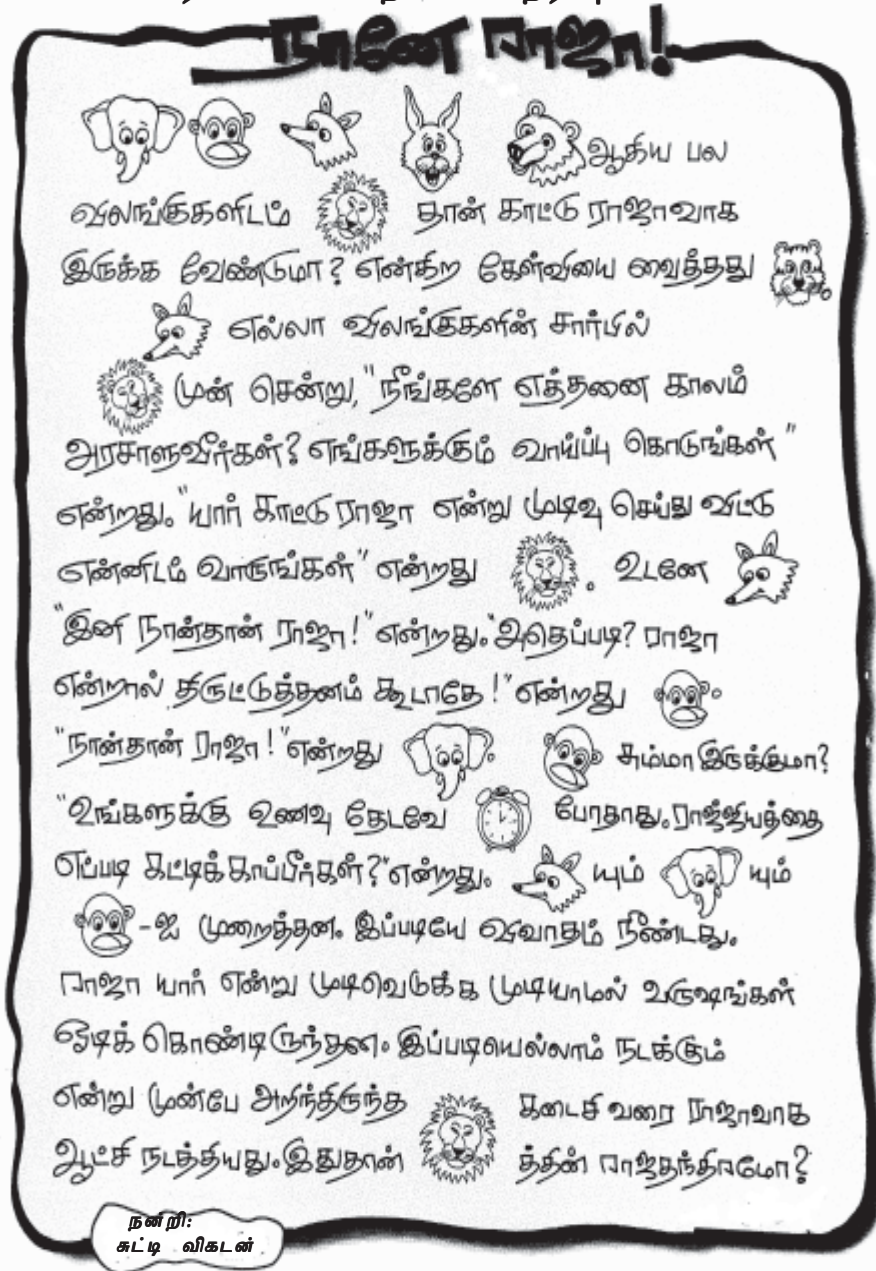 நானே ராஜா!
ஆகிய பல
விலங்குகளிடம் தான் காட்டு ராஜாவாக
இருக்க வேண்டுமா? என்கிற கேள்வியை வைத்தது .
எல்லா விலங்குகளின் சார்பில்
முன் சென்று, "நீங்களே எத்தனை காலம்
அரசாளுவீர்கள்? எங்களுக்கும் வாய்ப்பு கொடுங்கள்"
என்றது. "யார் காட்டு ராஜா என்று முடிவு செய்து விட்டு
என்னிடம் வாருங்கள்" என்றது . உடனே
"இனி நான்தான் ராஜா!" என்றது. "அதெப்படி? ராஜா
என்றால் திருட்டுத்தனம் கூடாதே!" என்றது .
"நான்தான் ராஜா!" என்றது . சும்மா இருக்குமா?
"உங்களுக்கு உணவு தேடவே போதாது. ராஜ்ஜியத்தை
எப்படி கட்டிக்காப்பீர்கள்?" என்றது. யும் யும்
-ஐ முறைத்தன. இப்படியே விவாதம் நீண்டது.
ராஜா யார் என்று முடிவெடுக்க முடியாமல் வருஷங்கள்
ஓடிக் கொண்டிருந்தன. இப்படியெல்லாம் நடக்கும்
என்று முன்பே அறிந்திருந்த கடைசி வரை ராஜாவாக
ஆட்சி நடத்தியது. இதுதான் த்தின் ராஜதந்திரமோ?
நன்றி:
சுட்டி விகடன்